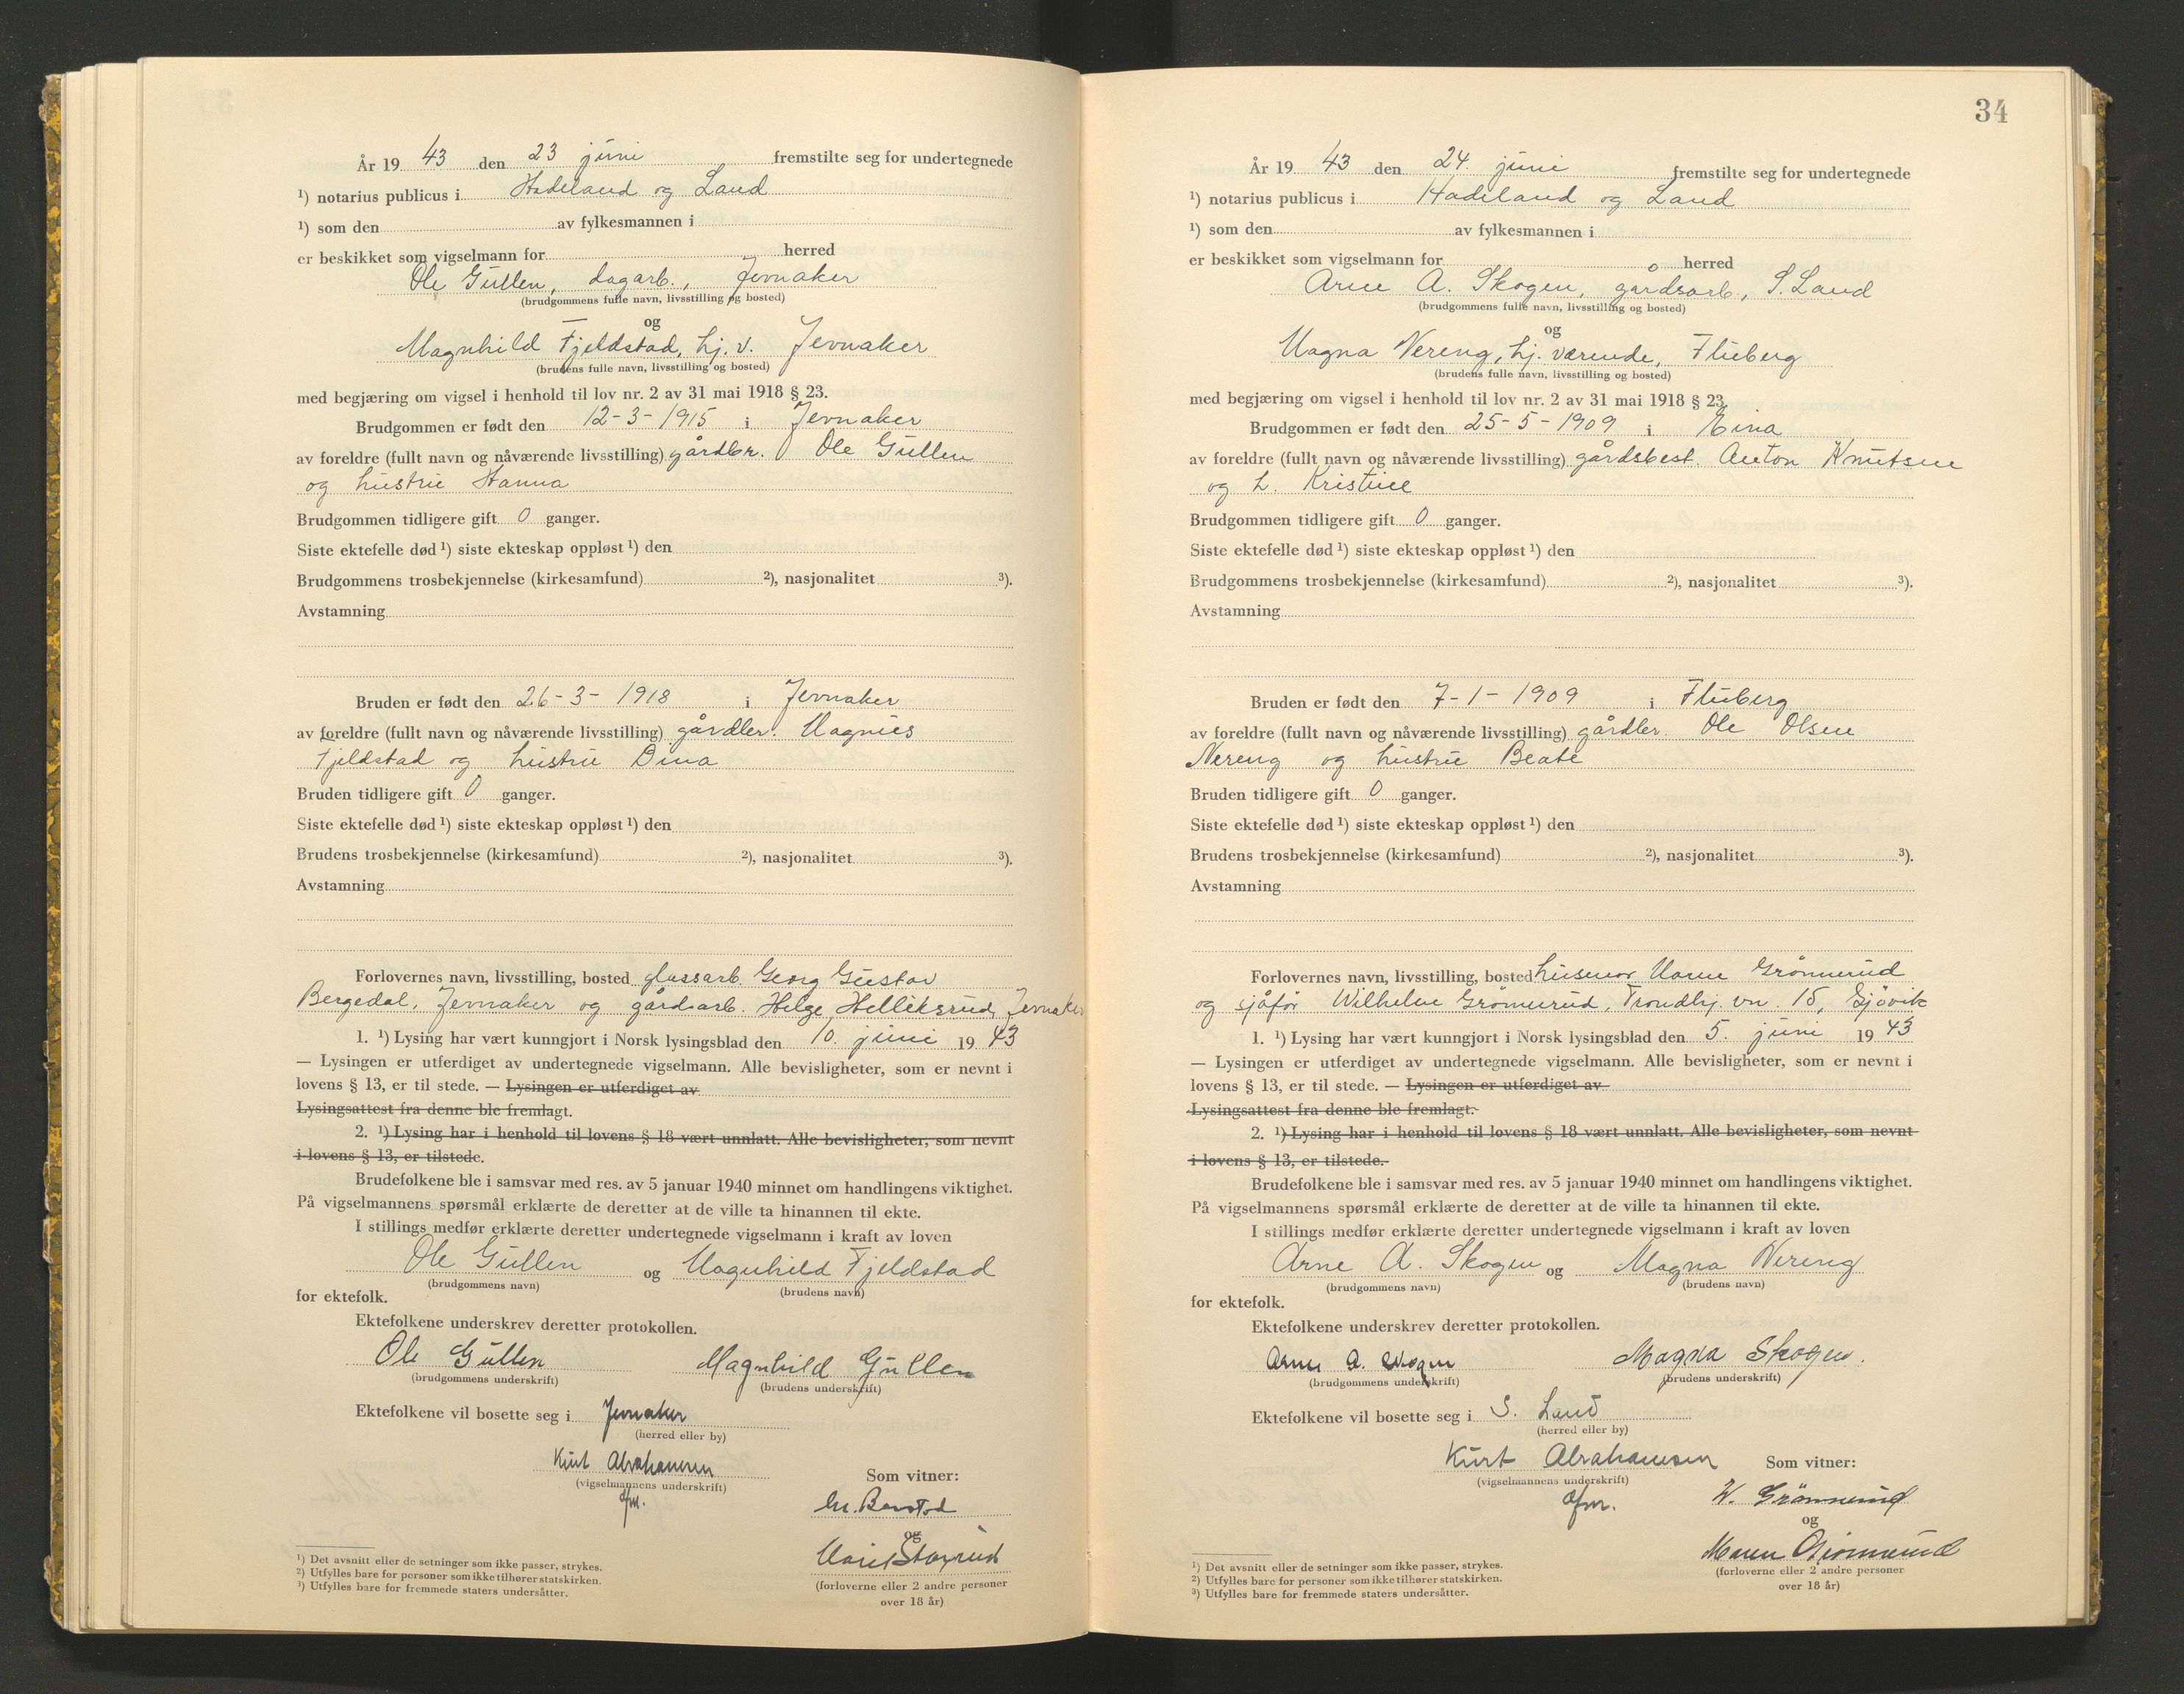 År 19 43 den 23 juni fremstilte seg for undertegnede
¹) notarius publicus i Hadeland og Land
¹) som den av fylkesmannen i
er beskikket som vigselmann for herred
Ole Gullen, dagarb., Jevnaker
(brudgommens fulle navn, livsstilling og bosted)
og
Magnhild Fjeldstad, hj. v. Jevnaker
(brudens fulle navn, livsstilling og bosted)
med begjæring om vigsel i henhold til lov nr. 2 av 31 mai 1918 § 23.
Brudgommen er født den 12-3-1915 i Jevnaker
av foreldre (fullt navn og nåværende livsstilling) gårdbr. Ole Gullen
og hustru Hanna
Brudgommen tidligere gift 0 ganger.
Siste ektefelle død ¹) siste ekteskap oppløst ¹) den
Brudgommens trosbekjennelse (kirkesamfund) ²), nasjonalitet ³).
Avstamning
Bruden er født den 26-3-1918 i Jevnaker
av foreldre (fullt navn og nåværende livsstilling) gårdbr. Magnus
Fjeldstad og hustru Dina
Bruden tidligere gift 0 ganger.
Siste ektefelle død ¹) siste ekteskap oppløst ¹) den
Brudens trosbekjennelse (kirkesamfund) ²), nasjonalitet ³).
Avstamning
Forlovernes navn, livsstilling, bosted glassarb. Georg Gustav
Bergedal, Jevnaker og gårdsarb. Helge Helleksrud, Jevnaker
1. ¹) Lysing har vært kunngjort i Norsk lysingsblad den 10. juni 19 43
— Lysingen er utferdiget av undertegnede vigselmann. Alle bevisligheter, som er nevnt i
lovens § 13, er til stede. — Lysingen er utferdiget av
Lysingsattest fra denne ble fremlagt.
2. ¹) Lysing har i henhold til lovens § 18 vært unnlatt. Alle bevisligheter, som nevnt
i lovens § 13, er tilstede.
Brudefolkene ble i samsvar med res. av 5 januar 1940 minnet om handlingens viktighet.
På vigselmannens spørsmål erklærte de deretter at de ville ta hinannen til ekte.
I stillings medfør erklærte deretter undertegnede vigselmann i kraft av loven
Ole Gullen og Magnhild Fjeldstad
(brudgommens navn) (brudens navn)
for ektefolk.
Ektefolkene underskrev deretter protokollen.
Ole Gullen Magnhild Gullen
(brudgommens underskrift) (brudens underskrift)
Ektefolkene vil bosette seg i Jevnaker
(herred eller by)
Kurt Abrahamsen
(vigselmannens underskrift) Som vitner:
ofm.
og
(forloverne eller 2 andre personer
over 18 år)
¹) Det avsnitt eller de setninger som ikke passer, strykes.
²) Utfylles bare for personer som ikke tilhører statskirken.
³) Utfylles bare for fremmede staters undersåtter.
34
År 19 43 den 24 juni fremstilte seg for undertegnede
¹) notarius publicus i Hadeland og Land
¹) som den av fylkesmannen i
er beskikket som vigselmann for herred
Arne A. Skogen, gårdsarb, S. Land
(brudgommens fulle navn, livsstilling og bosted)
og
Magna Nereng, hj. værende, Fluberg
(brudens fulle navn, livsstilling og bosted)
med begjæring om vigsel i henhold til lov nr. 2 av 31 mai 1918 § 23.
Brudgommen er født den 25-5-1909 i Eina
av foreldre (fullt navn og nåværende livsstilling) gårdsbest. Anton Knutsen
og h. Kristine
Brudgommen tidligere gift 0 ganger.
Siste ektefelle død ¹) siste ekteskap oppløst ¹) den
Brudgommens trosbekjennelse (kirkesamfund) ²), nasjonalitet ³).
Avstamning
Bruden er født den 7-1-1909 i Fluberg
av foreldre (fullt navn og nåværende livsstilling) gårdbr. Ole Olsen
Nereng og hustru Beate
Bruden tidligere gift 0 ganger.
Siste ektefelle død ¹) siste ekteskap oppløst ¹) den
Brudens trosbekjennelse (kirkesamfund) ²), nasjonalitet ³).
Avstamning
Forlovernes navn, livsstilling, bosted husmor Maren Grønnerud
og sjåfør Wilhelm Grønnerud, Trondhj. vn. 15, Gjøvik
1. ¹) Lysing har vært kunngjort i Norsk lysingsblad den 5. juni 19 43
— Lysingen er utferdiget av undertegnede vigselmann. Alle bevisligheter, som er nevnt i
lovens § 13, er til stede. — Lysingen er utferdiget av
Lysingsattest fra denne ble fremlagt.
2. ¹) Lysing har i henhold til lovens § 18 vært unnlatt. Alle bevisligheter, som nevnt
i lovens § 13, er tilstede.
Brudefolkene ble i samsvar med res. av 5 januar 1940 minnet om handlingens viktighet.
På vigselmannens spørsmål erklærte de deretter at de ville ta hinannen til ekte.
I stillings medfør erklærte deretter undertegnede vigselmann i kraft av loven
Arne A. Skogen og Magna Nereng
(brudgommens navn) (brudens navn)
for ektefolk.
Ektefolkene underskrev deretter protokollen.
Arne A. Skogen Magna Skogen.
(brudgommens underskrift) (brudens underskrift)
Ektefolkene vil bosette seg i S. Land
(herred eller by)
Kurt Abrahamsen Som vitner:
(vigselmannens underskrift)
ofm. W. Grønnerud
og
Maren Grønnerud
(forloverne eller 2 andre personer
over 18 år)
¹) Det avsnitt eller de setninger som ikke passer, strykes.
²) Utfylles bare for personer som ikke tilhører statskirken.
³) Utfylles bare for fremmede staters undersåtter.